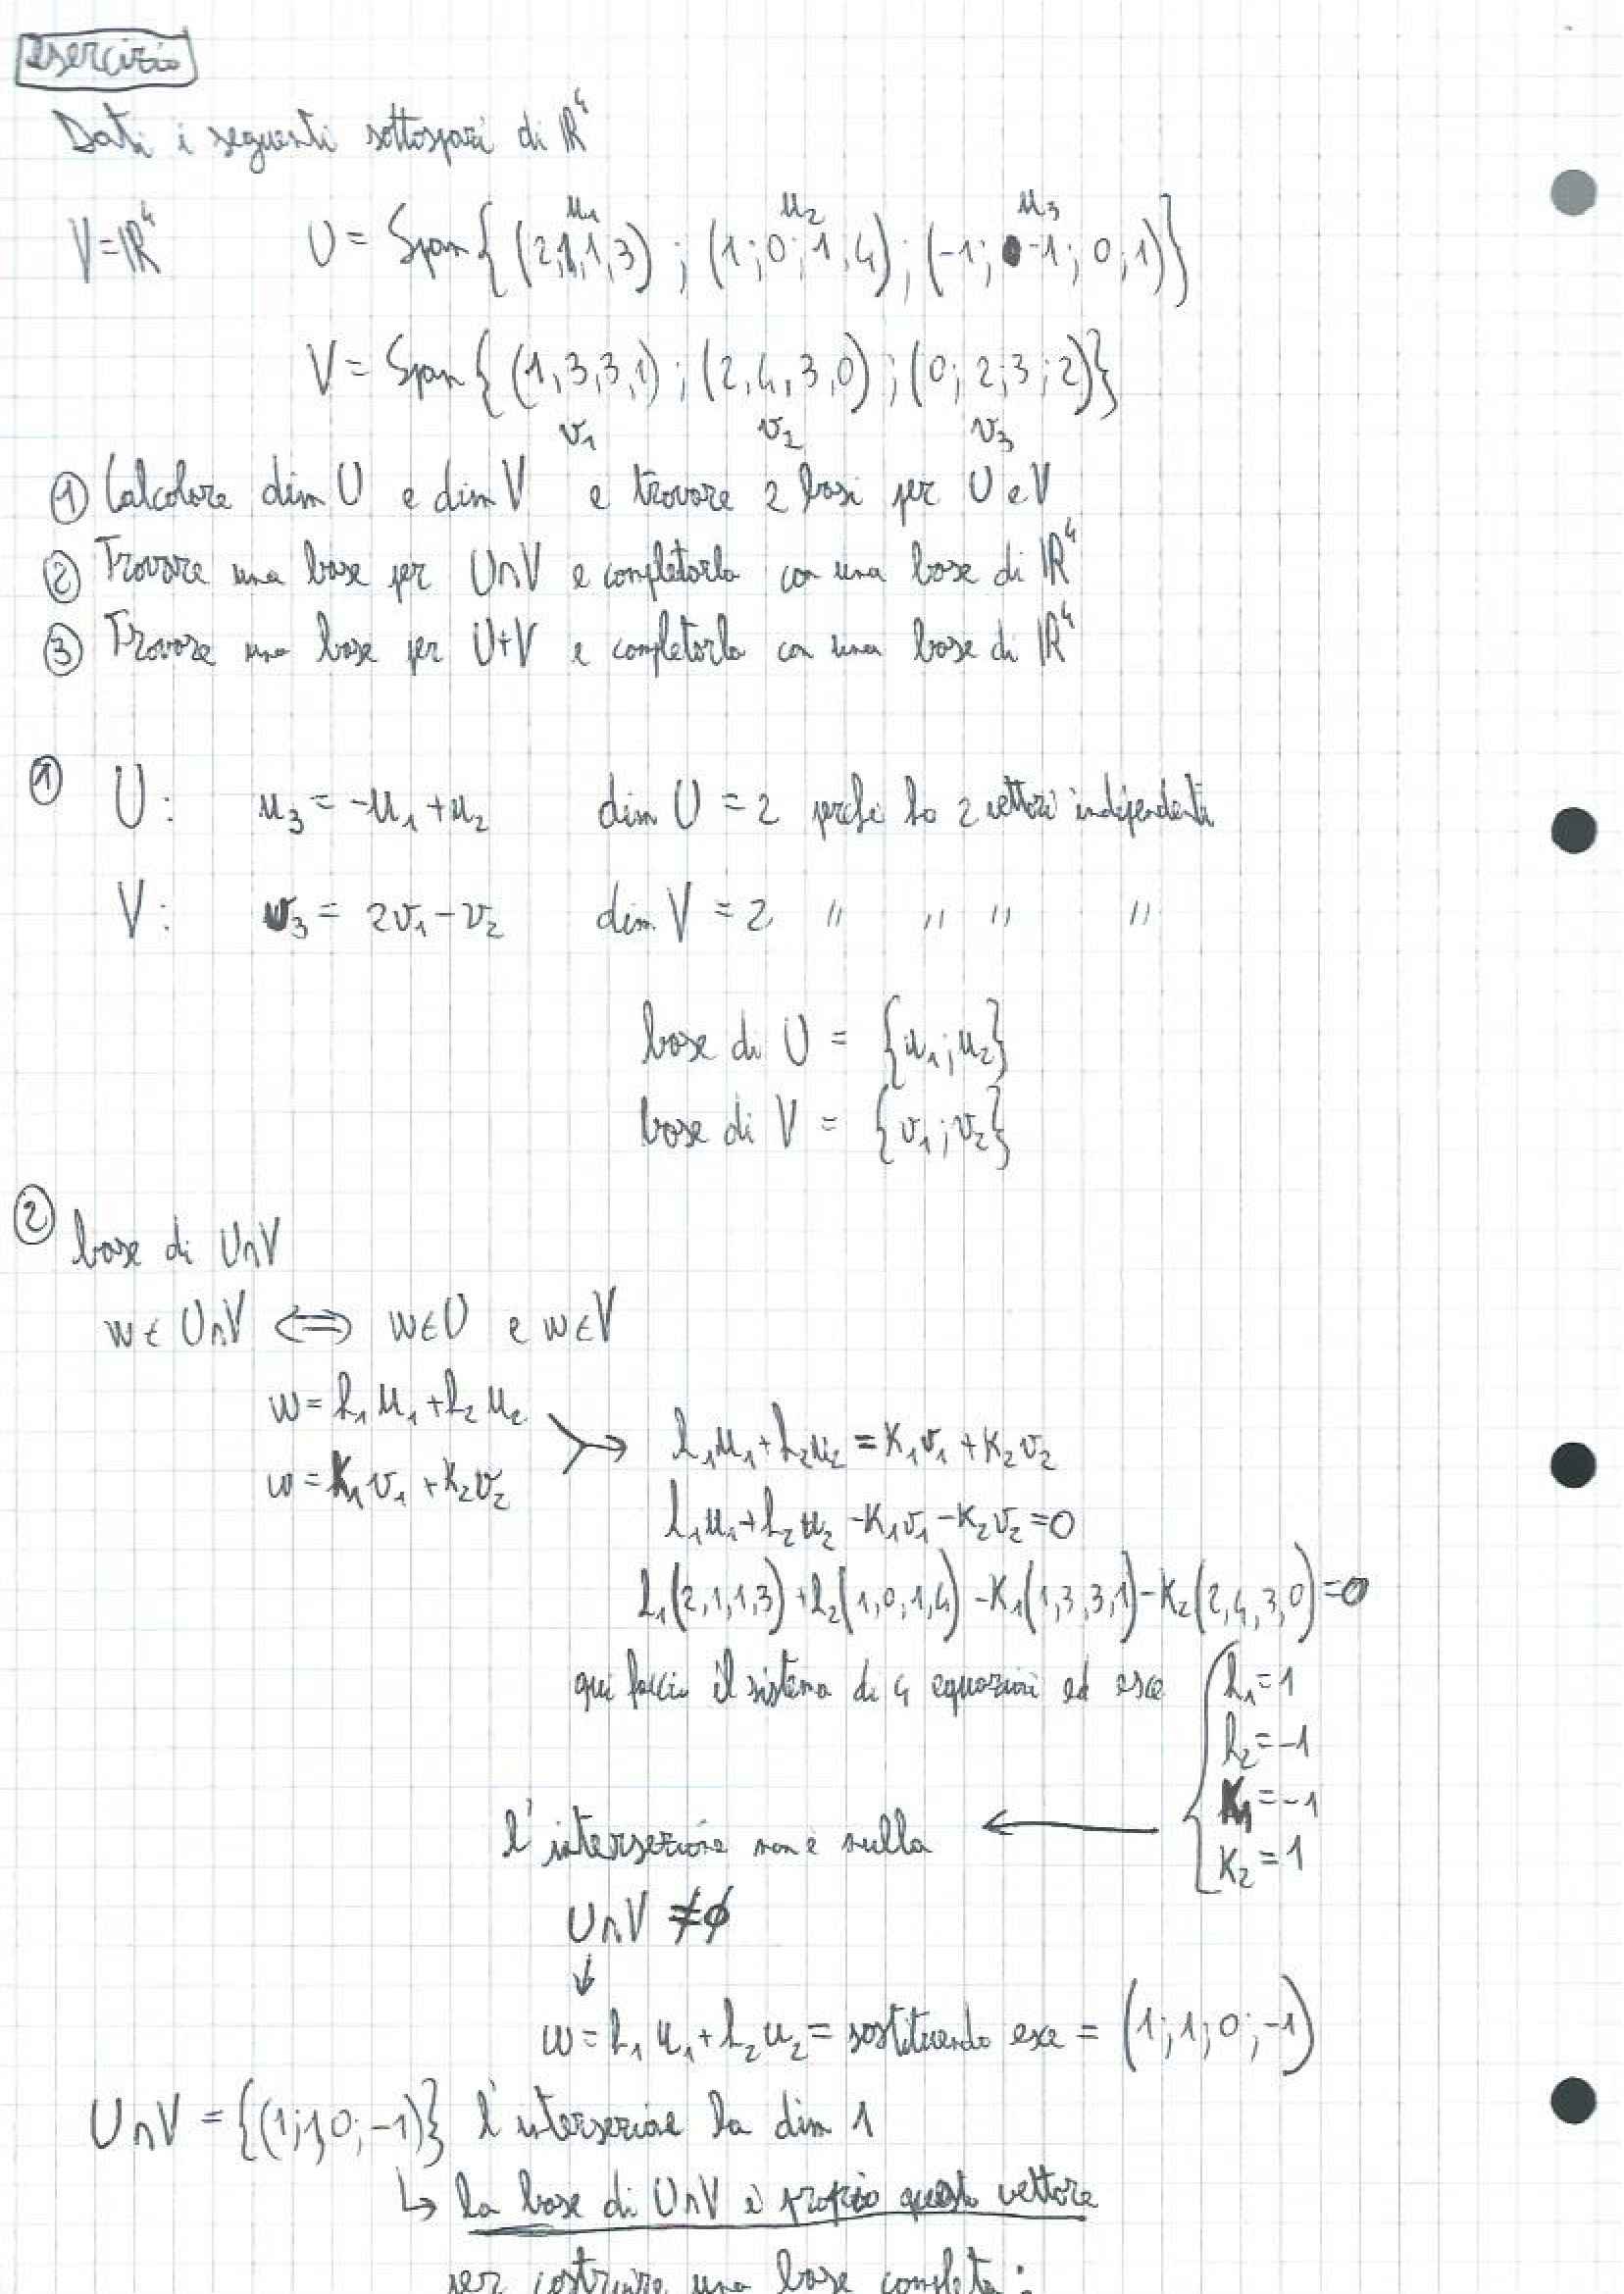 esercizio
Dati i seguenti sottospazi di ℝ⁴
V=ℝ⁴ U = Span{(2,1,1,3) ; (1;0;1,4) ; (-1; -1; 0;1)}
u₁ u₂ u₃
V = Span{(1,3,3,1) ; (2,4,3,0) ; (0; 2;3;2)}
v₁ v₂ v₃
① Calcolare dim U e dim V e trovare 2 basi per U e V
② Trovare una base per U∩V e completarla con una base di ℝ⁴
③ Trovare una base per U+V e completarla con una base di ℝ⁴
① U: u₃ = -u₁ + u₂ dim U = 2 perché ho 2 vettori indipendenti
V: v₃ = 2v₁ - v₂ dim V = 2 " " " "
base di U = {u₁; u₂}
base di V = {v₁; v₂}
② base di U∩V
w ∈ U∩V ⟺ w∈U e w∈V
w = h₁u₁ + h₂u₂
w = k₁v₁ + k₂v₂
h₁u₁ + h₂u₂ = k₁v₁ + k₂v₂
h₁u₁ + h₂u₂ - k₁v₁ - k₂v₂ = 0
h₁(2,1,1,3) + h₂(1,0,1,4) - k₁(1,3,3,1) - k₂(2,4,3,0) = 0
qui faccio il sistema di 4 equazioni ed esce { h₁=1
h₂=-1
k₁=-1
k₂=1
l'intersezione non è nulla ←
U∩V ≠ ∅
↓
w = h₁u₁ + h₂u₂ = sostituendo esce = (1;1;0;-1)
U∩V = {(1;1;0;-1)} l'intersezione ha dim 1
↳ la base di U∩V è proprio questo vettore
per costruire una base completa: